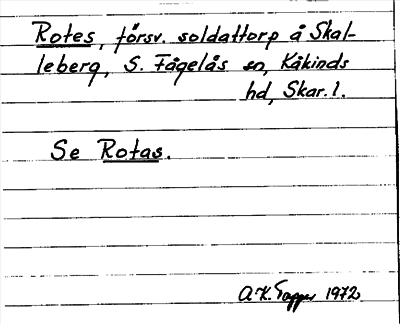 Rotes, försv. soldattorp å Skal-
leberg, S. Fågelås sn, Kåkinds
hd, Skar. l.
Se Rotas.
A.K. 1972